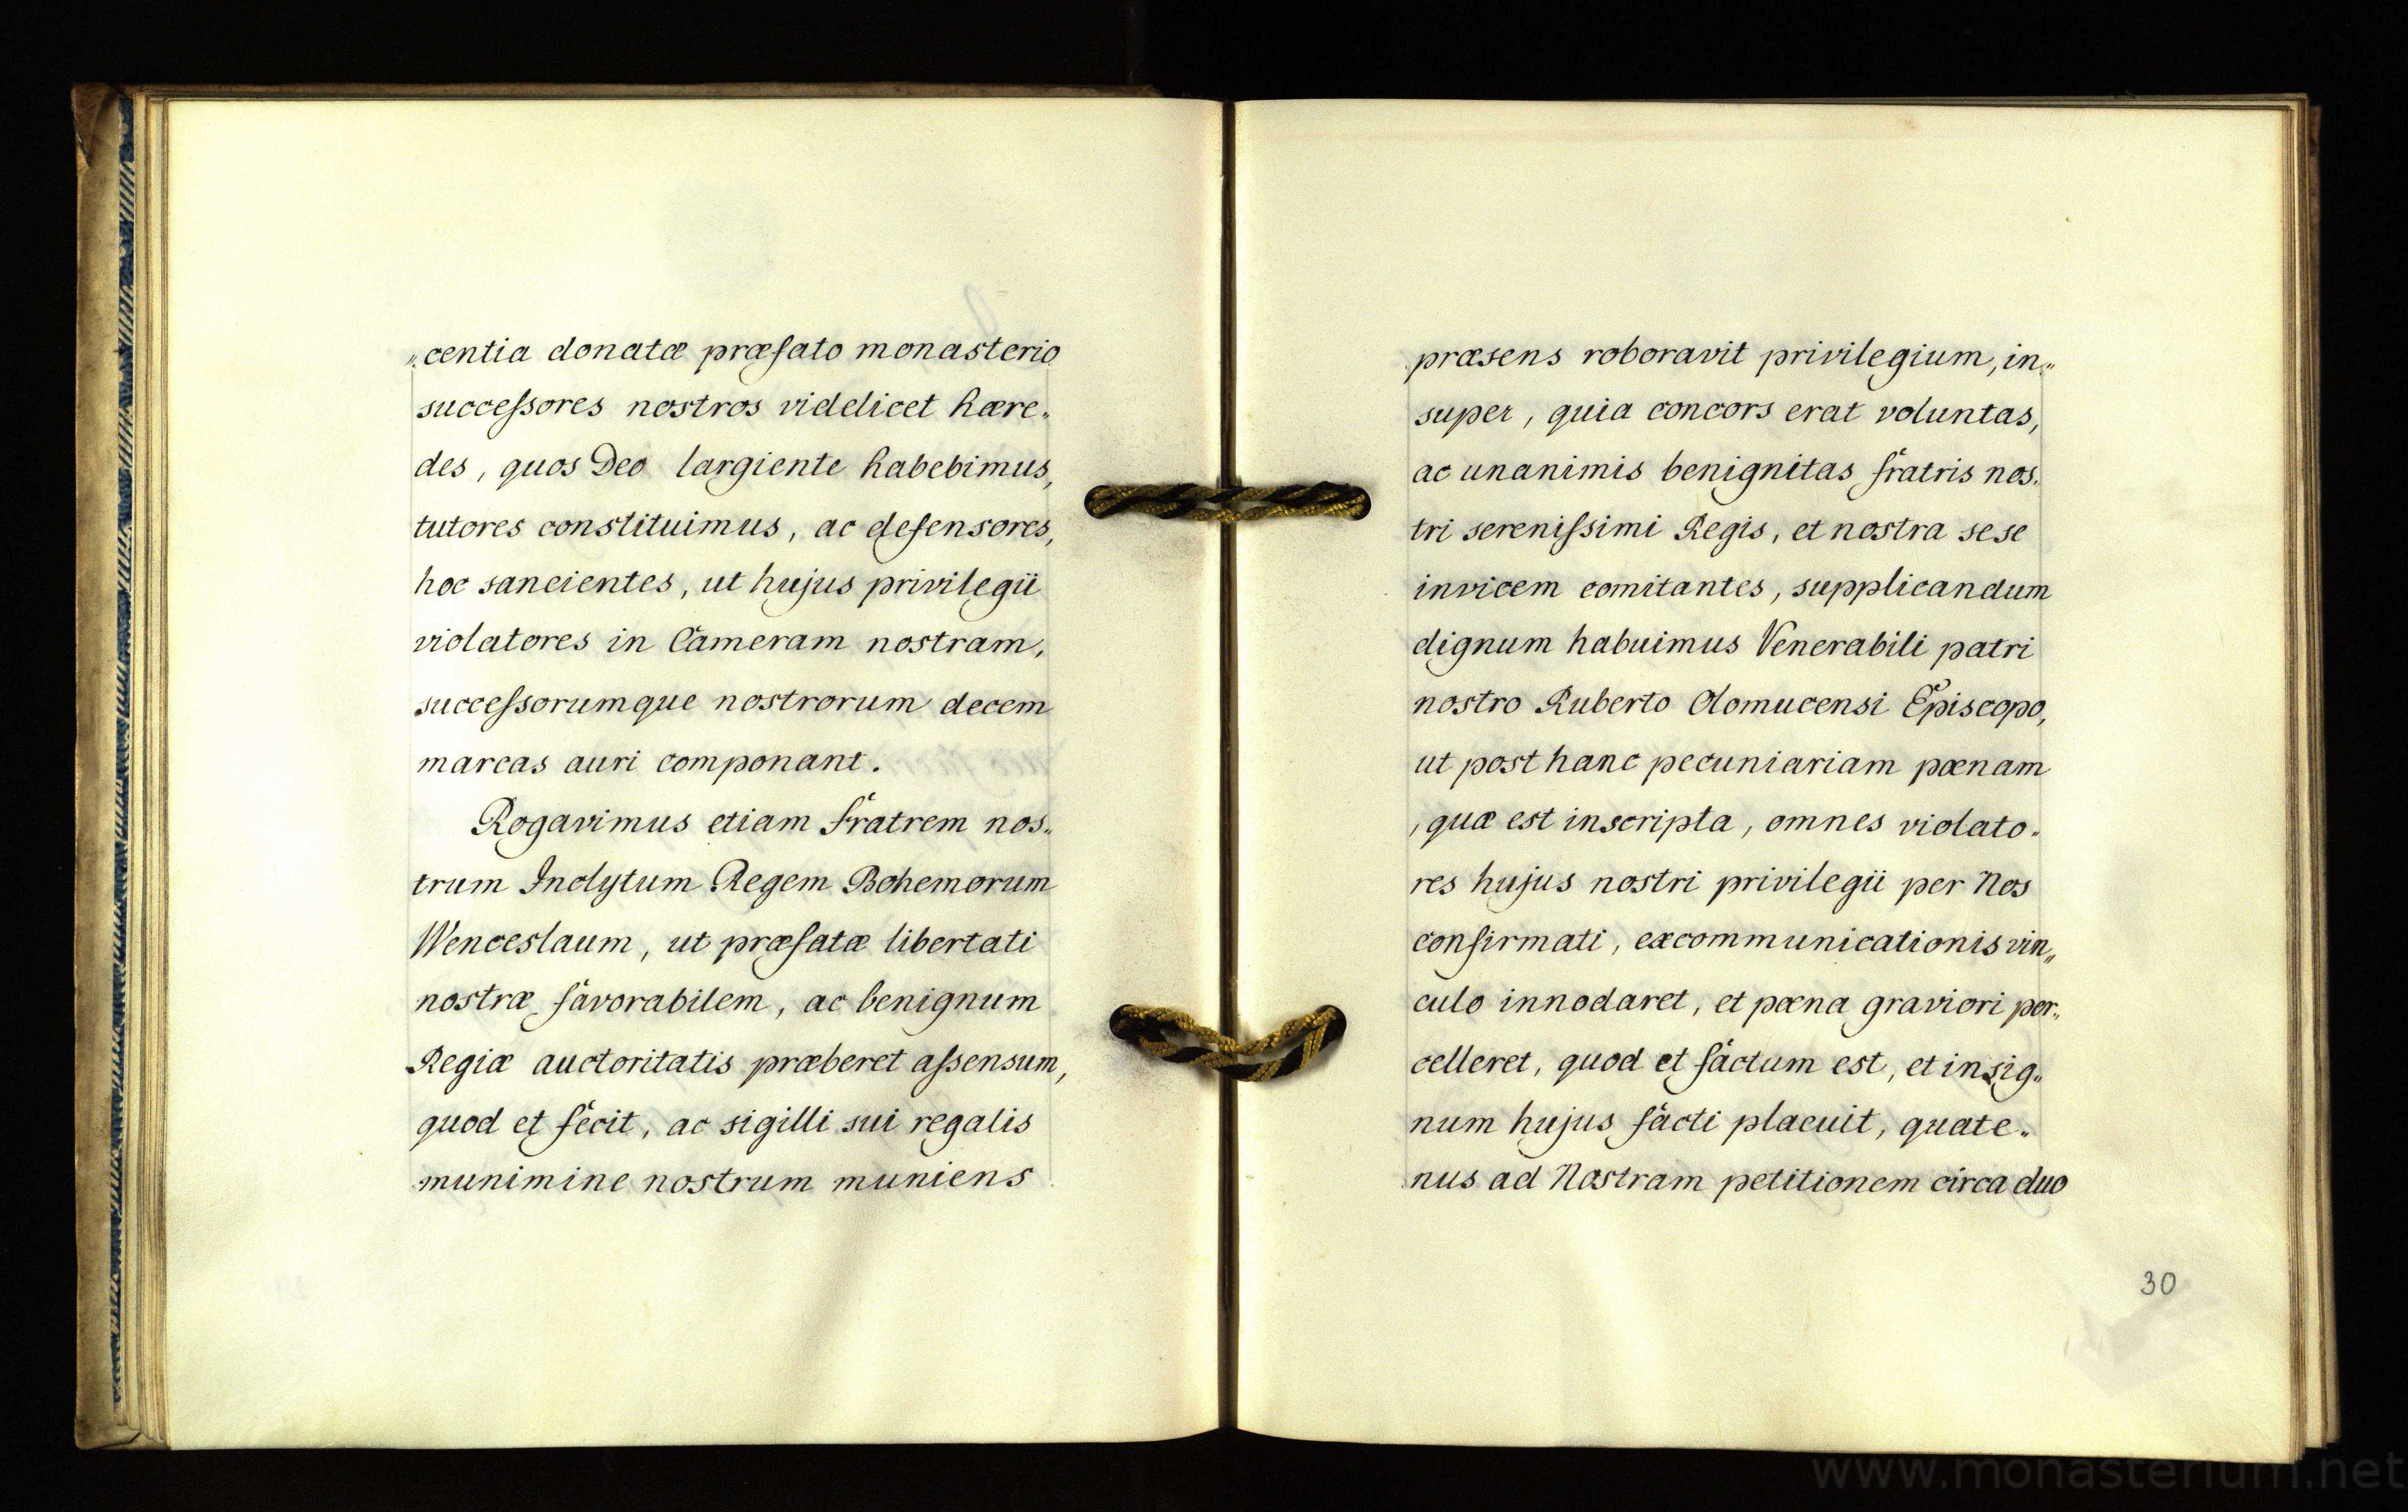 „centia donatæ præfato monasterio
succeſsores nostros videlicet hære„
des, quos Deo largiente habebimus,
tutores constituimus, ac defensores,
hoc sancientes, ut hujus privilegii
violatores in Cameram nostram,
succeſsorumque nostrorum decem
marcas auri componant.
Rogavimus etiam fratrem nos„
trum Inclytum Regem Bohemorum
Wenceslaum, ut præfatæ libertati
nostræ favorabilem, ac benignum
Regiæ auctoritatis præberet aſsensum,
quod et fecit, ac sigilli sui regalis
munimine nostrum muniens
præsens roboravit privilegium, in„
super, quia concors erat voluntas,
ac unanimis benignitas fratris nos„
tri sereniſsimi Regis, et nostra sese
invicem comitantes, supplicandum
dignum habuimus Venerabili patri
nostro Ruberto Olomucensi Episcopo,
ut post hanc pecuniariam pœnam
, quæ est inscripta, omnes violato„
res hujus nostri privilegii per Nos
confirmati, excommunicationis vin„
culo innodaret, et pœna graviori per„
celleret, quod et factum est, et in sig„
num hujus facti placuit, quate„
nus ad Nostram petitionem circa duo
30
www.monasterium.net